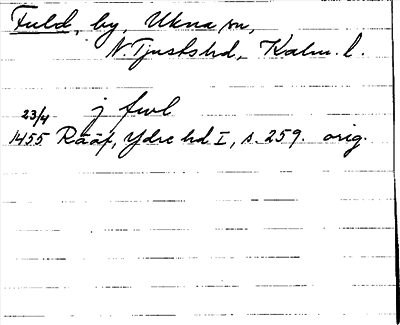 Fuld, by, Ukna sn,
N. Tjusts hd, Kalm. l.
23/4 j fwl
1455 Rääf, Ydre hd I, s. 259. orig.